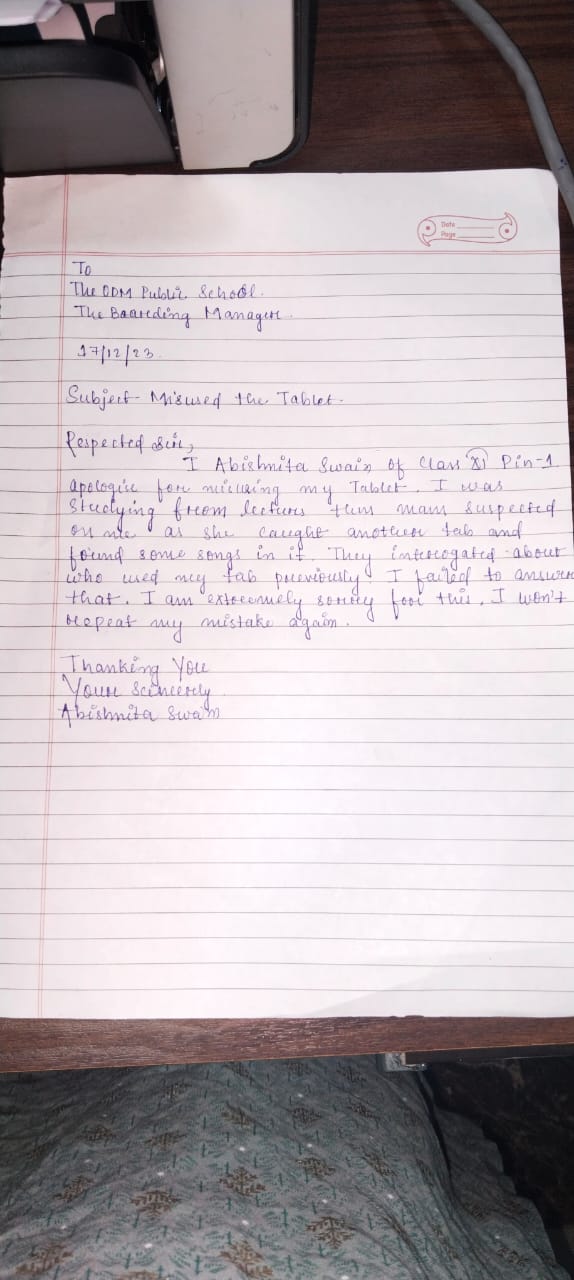 Date
Page
To
The ODM Public School.
The Boarding Manager.
17/12/23.
Subject- Misused the Tablet.
Respected Sir,
I Abishmita Swain of Class XI Pin-1
apologise for misusing my Tablet. I was
studying from lectures then mam suspected
on me as she caught another tab and
found some songs in it. They interogated about
who used my tab previously I failed to answer
that. I am extreemely sorrey foor this. I won't
repeat my mistake again.
Thanking You
Your Scincerely
Abishmita Swain